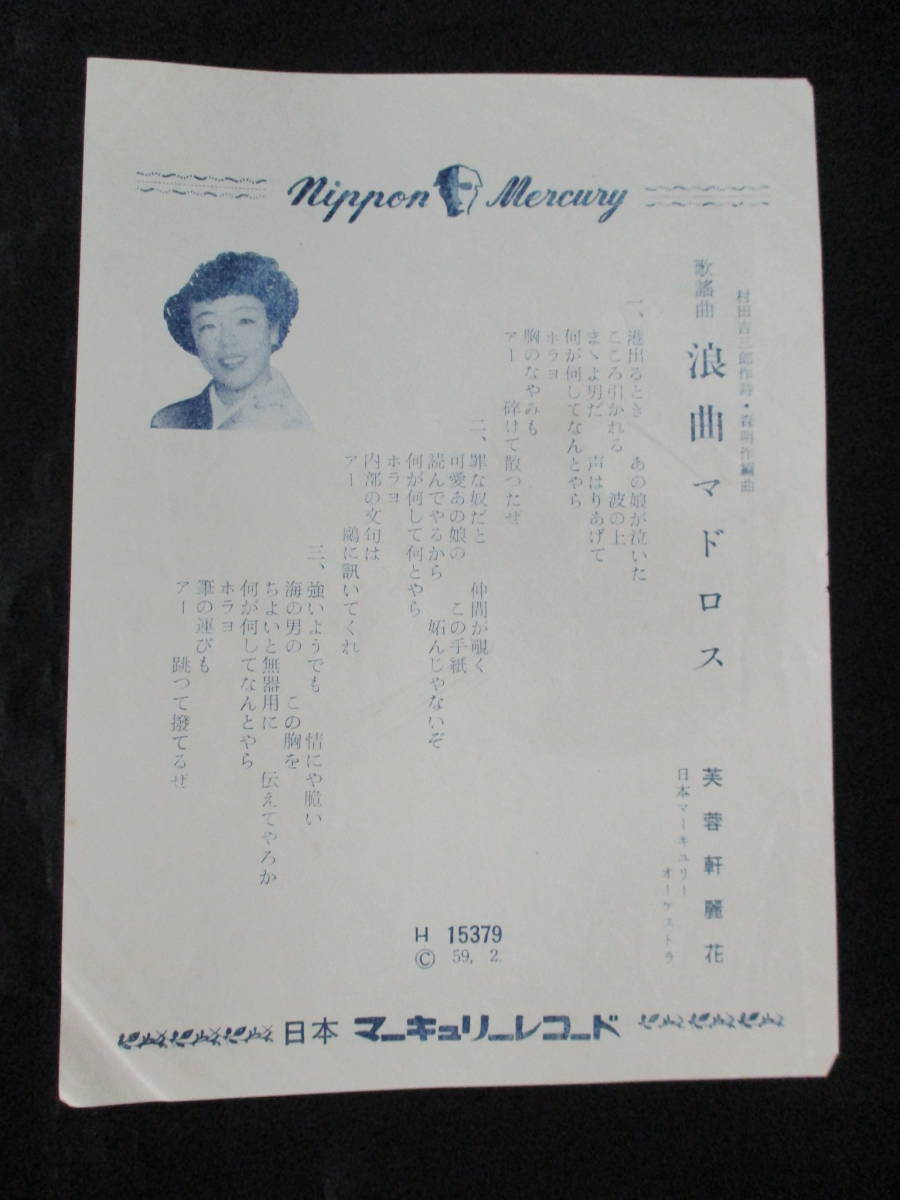 Nippon Mercury
村田吉三郎作詩・森明作編曲
歌謡曲 浪曲マドロス
芙蓉軒麗花
日本マーキュリー
オーケストラ
一、港出るとき あの娘が泣いた
こころ引かれる 波の上
まゝよ男だ 声はりあげて
何が何してなんとやら
ホラヨ
胸のなやみも
アー 碎けて散つたぜ
二、罪な奴だと 仲間が覗く
可愛あの娘の この手紙
読んでやるから 妬んじゃないぞ
何が何して何とやら
ホラヨ
内部の文句は
アー 鷗に訊いてくれ
三、強いようでも 情にや脆い
海の男の この胸を
ちよいと無器用に 伝えてやろか
何が何してなんとやら
ホラヨ
筆の運びも
アー 跳つて撥てるぜ
H 15379
© 59, 2.
日本 マーキュリーレコード